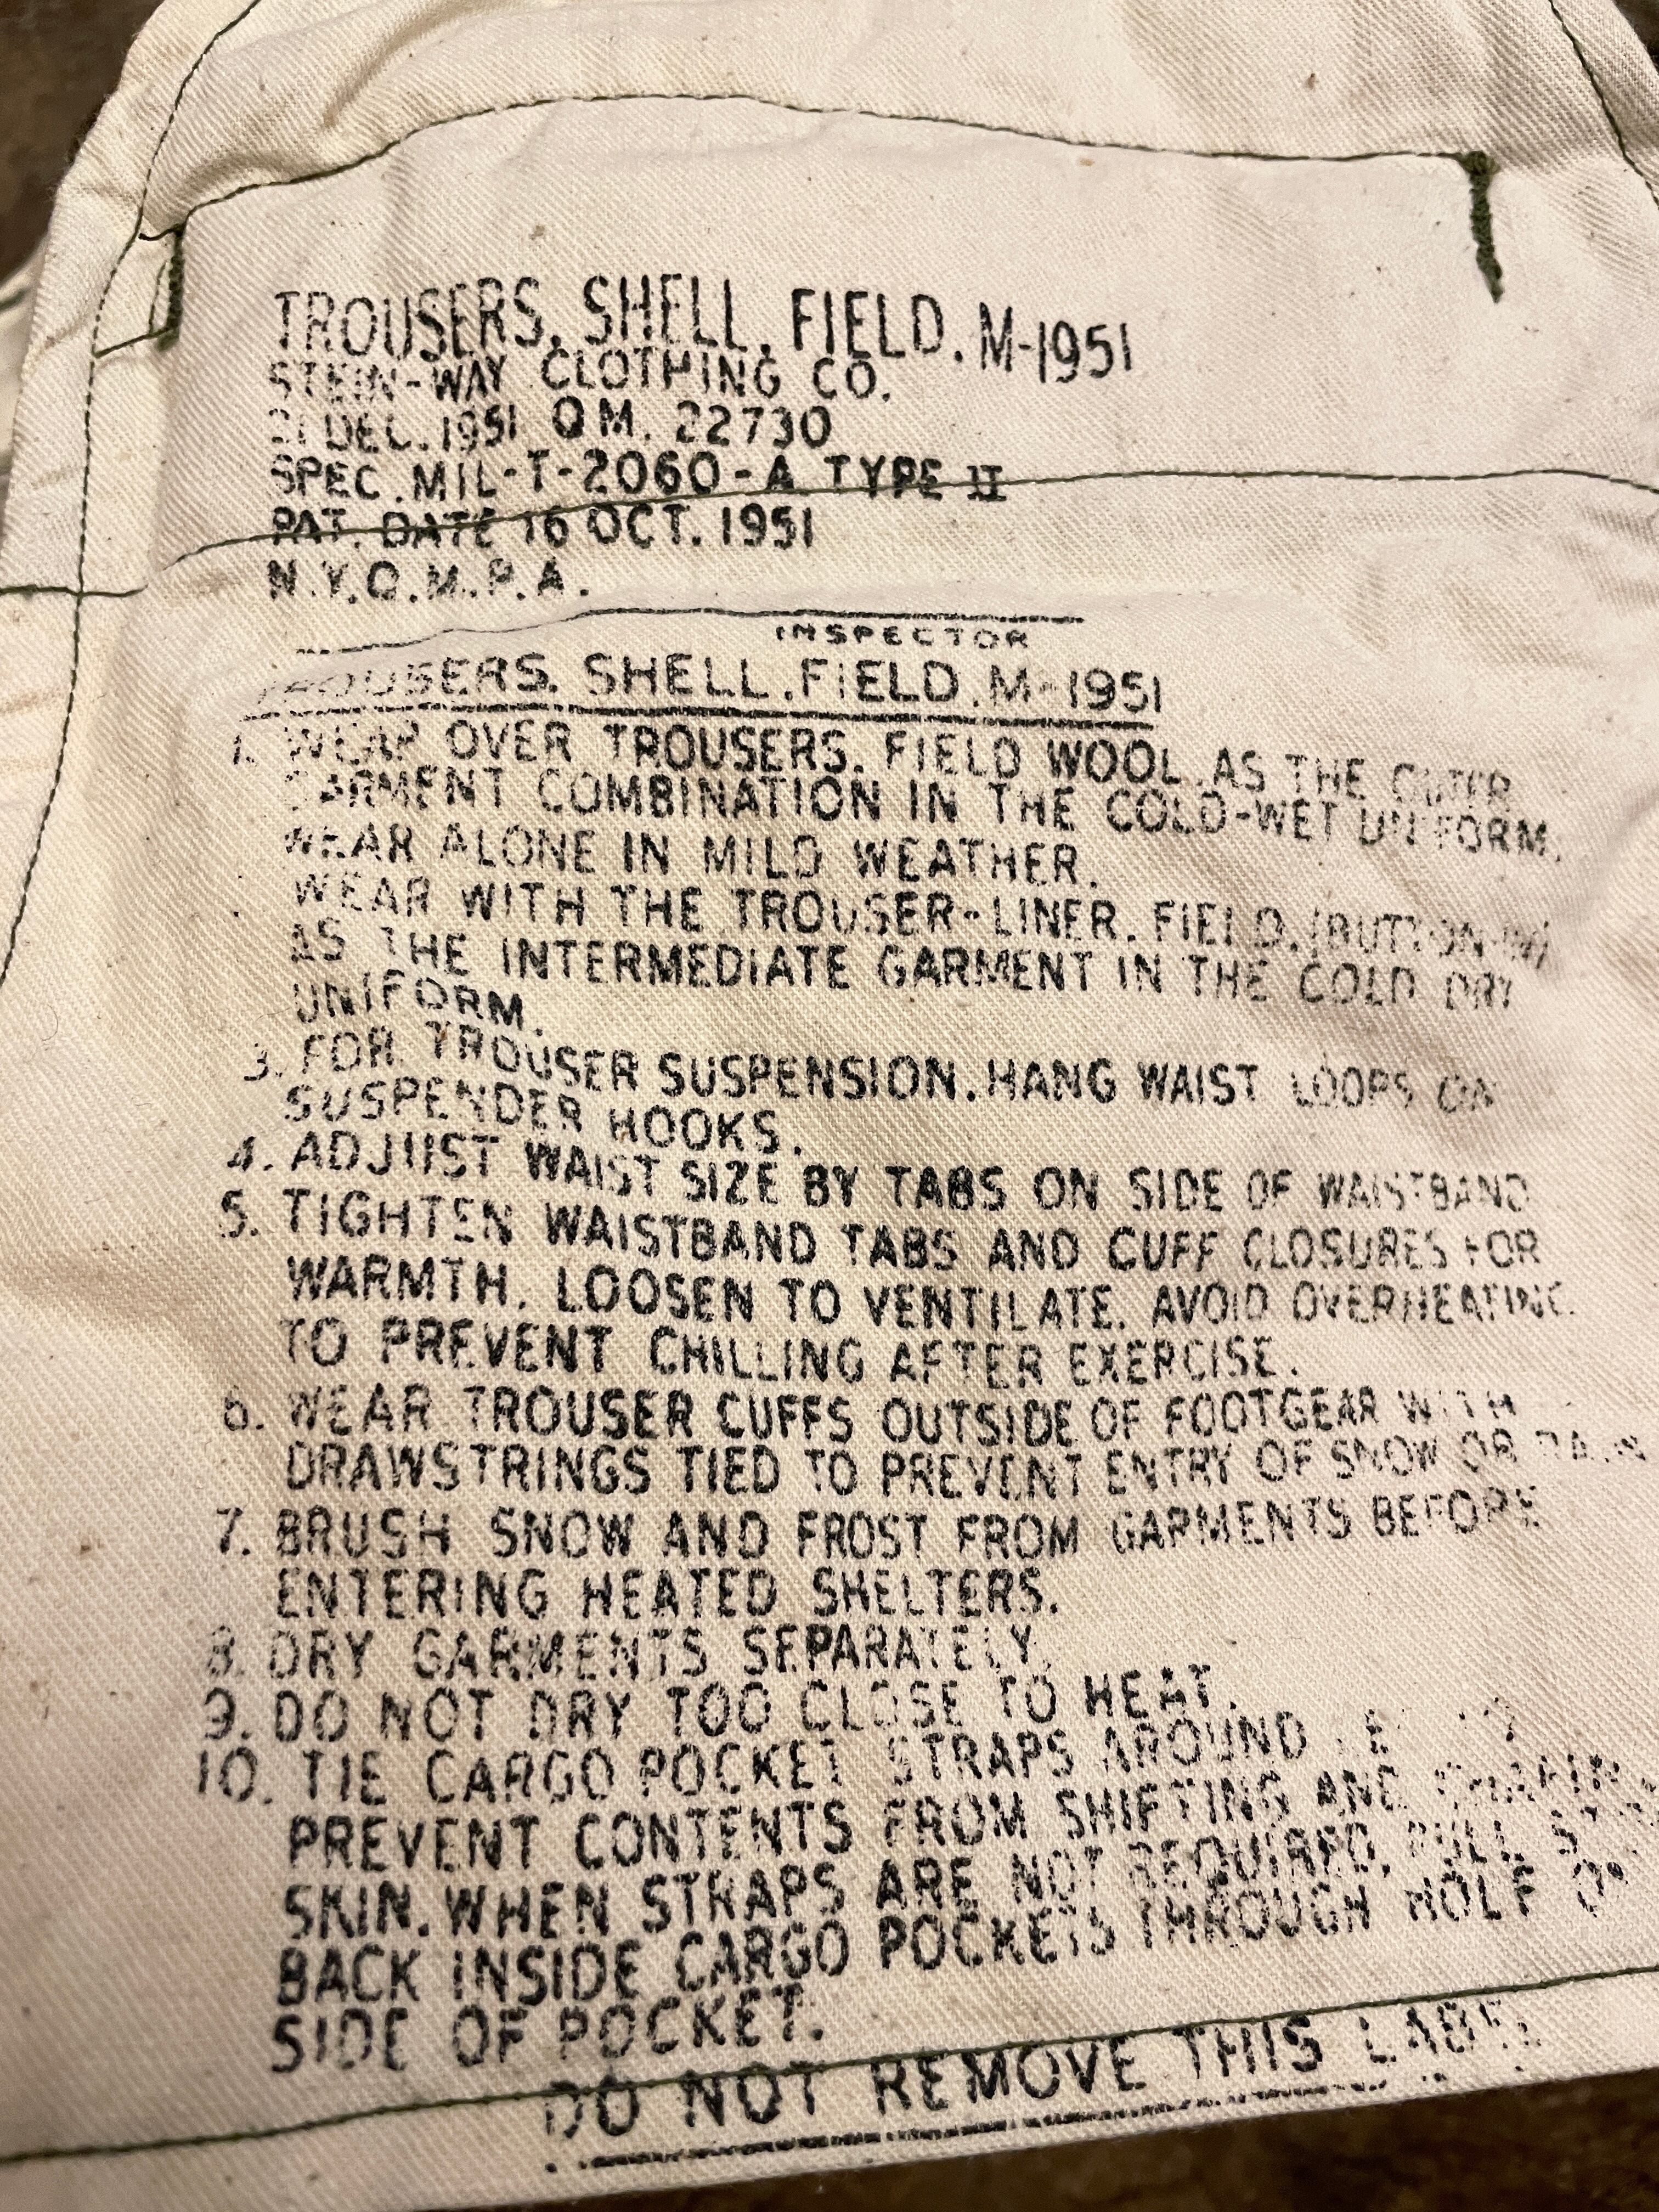 TROUSERS, SHELL, FIELD, M-1951
STEIN-WAY CLOTHING CO.
21 DEC. 1951 QM. 22730
SPEC. MIL-T-2060-A TYPE II
PAT. DATE 16 OCT. 1951
N.Y.Q.M.P.A.
INSPECTOR
TROUSERS, SHELL, FIELD, M-1951
1. WEAR OVER TROUSERS, FIELD WOOL, AS THE OUTER
GARMENT COMBINATION IN THE COLD-WET UNIFORM.
WEAR ALONE IN MILD WEATHER.
WEAR WITH THE TROUSER-LINER, FIELD, (BUTTON-IN)
AS THE INTERMEDIATE GARMENT IN THE COLD DRY
UNIFORM.
3. FOR TROUSER SUSPENSION, HANG WAIST LOOPS ON
SUSPENDER HOOKS.
4. ADJUST WAIST SIZE BY TABS ON SIDE OF WAISTBAND
5. TIGHTEN WAISTBAND TABS AND CUFF CLOSURES FOR
WARMTH. LOOSEN TO VENTILATE. AVOID OVERHEATING
TO PREVENT CHILLING AFTER EXERCISE.
6. WEAR TROUSER CUFFS OUTSIDE OF FOOTGEAR WITH
DRAWSTRINGS TIED TO PREVENT ENTRY OF SNOW OR RAIN
7. BRUSH SNOW AND FROST FROM GARMENTS BEFORE
ENTERING HEATED SHELTERS.
8. DRY GARMENTS SEPARATELY.
9. DO NOT DRY TOO CLOSE TO HEAT.
10. TIE CARGO POCKET STRAPS AROUND
PREVENT CONTENTS FROM SHIFTING AND CHAFING
SKIN. WHEN STRAPS ARE NOT REQUIRED, PULL
BACK INSIDE CARGO POCKETS THROUGH HOLE
SIDE OF POCKET.
DO NOT REMOVE THIS LABEL